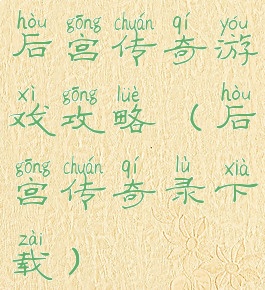 hòu gōng chuán qí yóu
后宫传奇游
xì gōng lüè hòu
戏攻略（后
gōng chuán qí lù xià
宫传奇录下
zài
载）